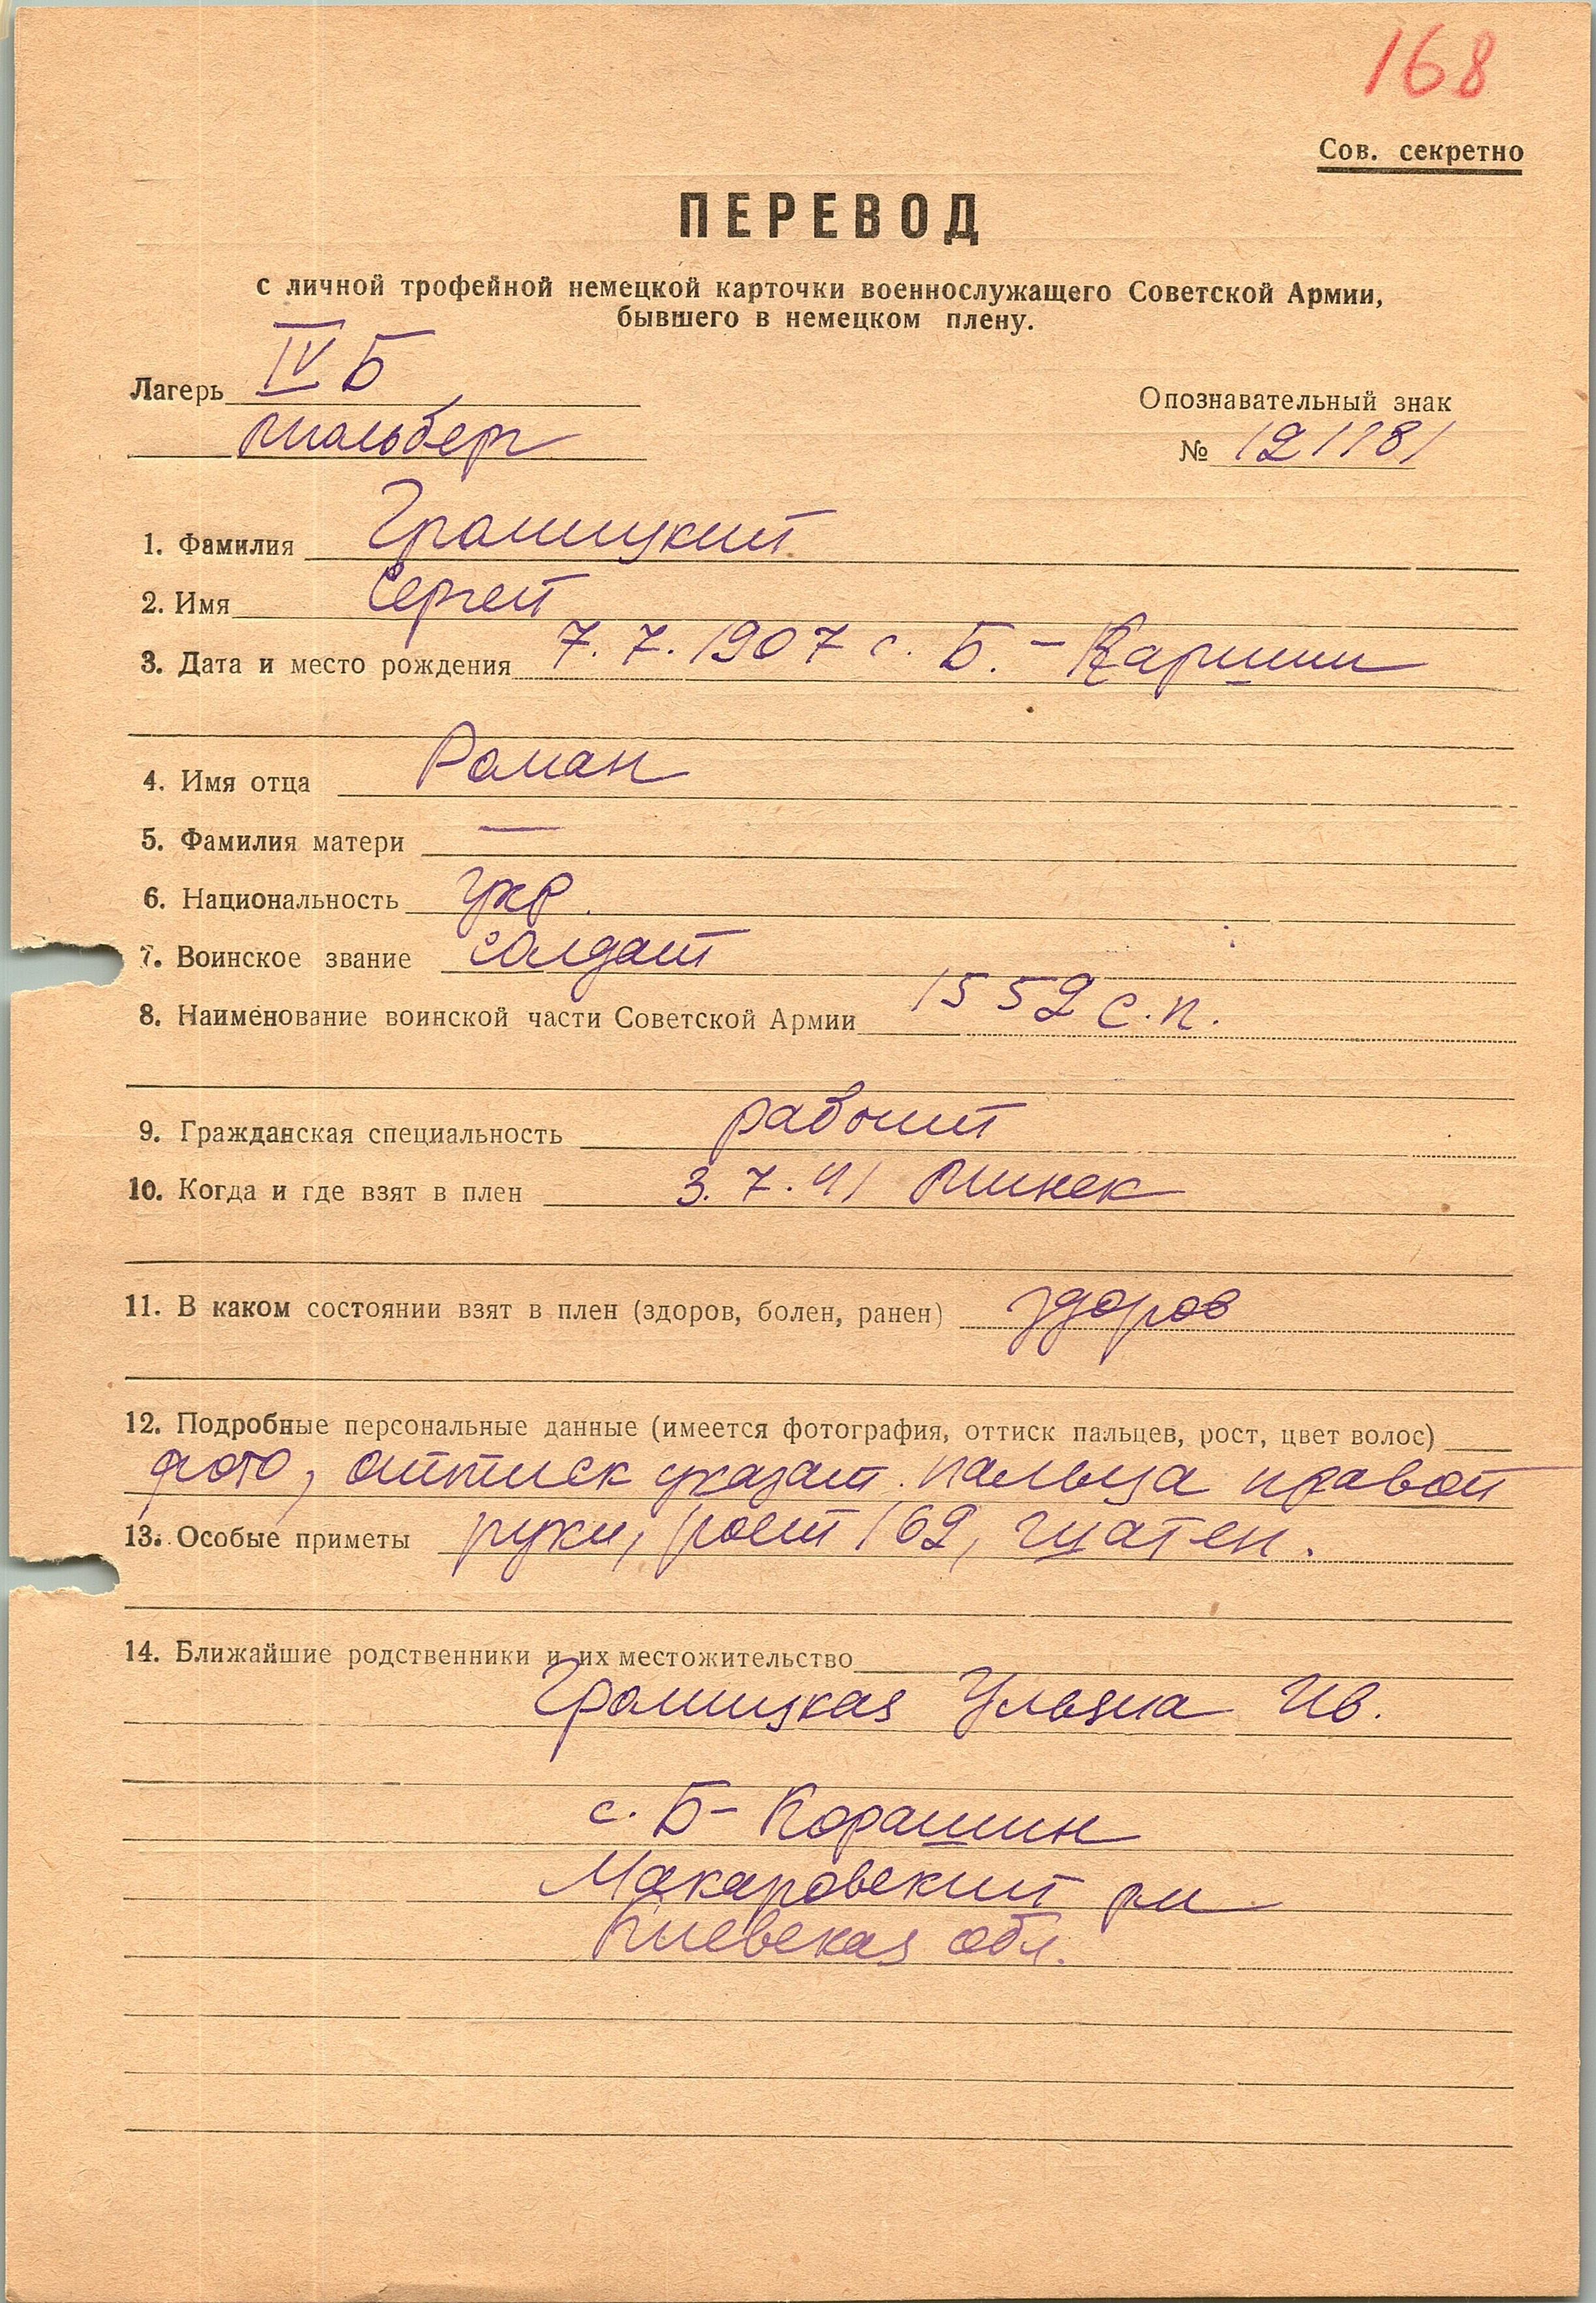 168
Сов. секретно
ПЕРЕВОД
с личной трофейной немецкой карточки военнослужащего Советской Армии,
бывшего в немецком плену.
Лагерь IV Б
Мюльберг
Опознавательный знак
№ 121181
1. Фамилия Громицкий
2. Имя Сергей
3. Дата и место рождения 7.7.1907 с. Б.-
4. Имя отца Роман
5. Фамилия матери —
6. Национальность укр.
7. Воинское звание солдат
8. Наименование воинской части Советской Армии 1552 с.п.
9. Гражданская специальность рабочий
10. Когда и где взят в плен 3.7.41 Минск
11. В каком состоянии взят в плен (здоров, болен, ранен) здоров
12. Подробные персональные данные (имеется фотография, оттиск пальцев, рост, цвет волос)
фото, оттиск указат. пальца правой
13. Особые приметы руки, рост 169, шатен.
14. Ближайшие родственники и их местожительство
Громицкая Ульяна Ив.
с. Б- Корашин
Макаровский рн
Киевская обл.